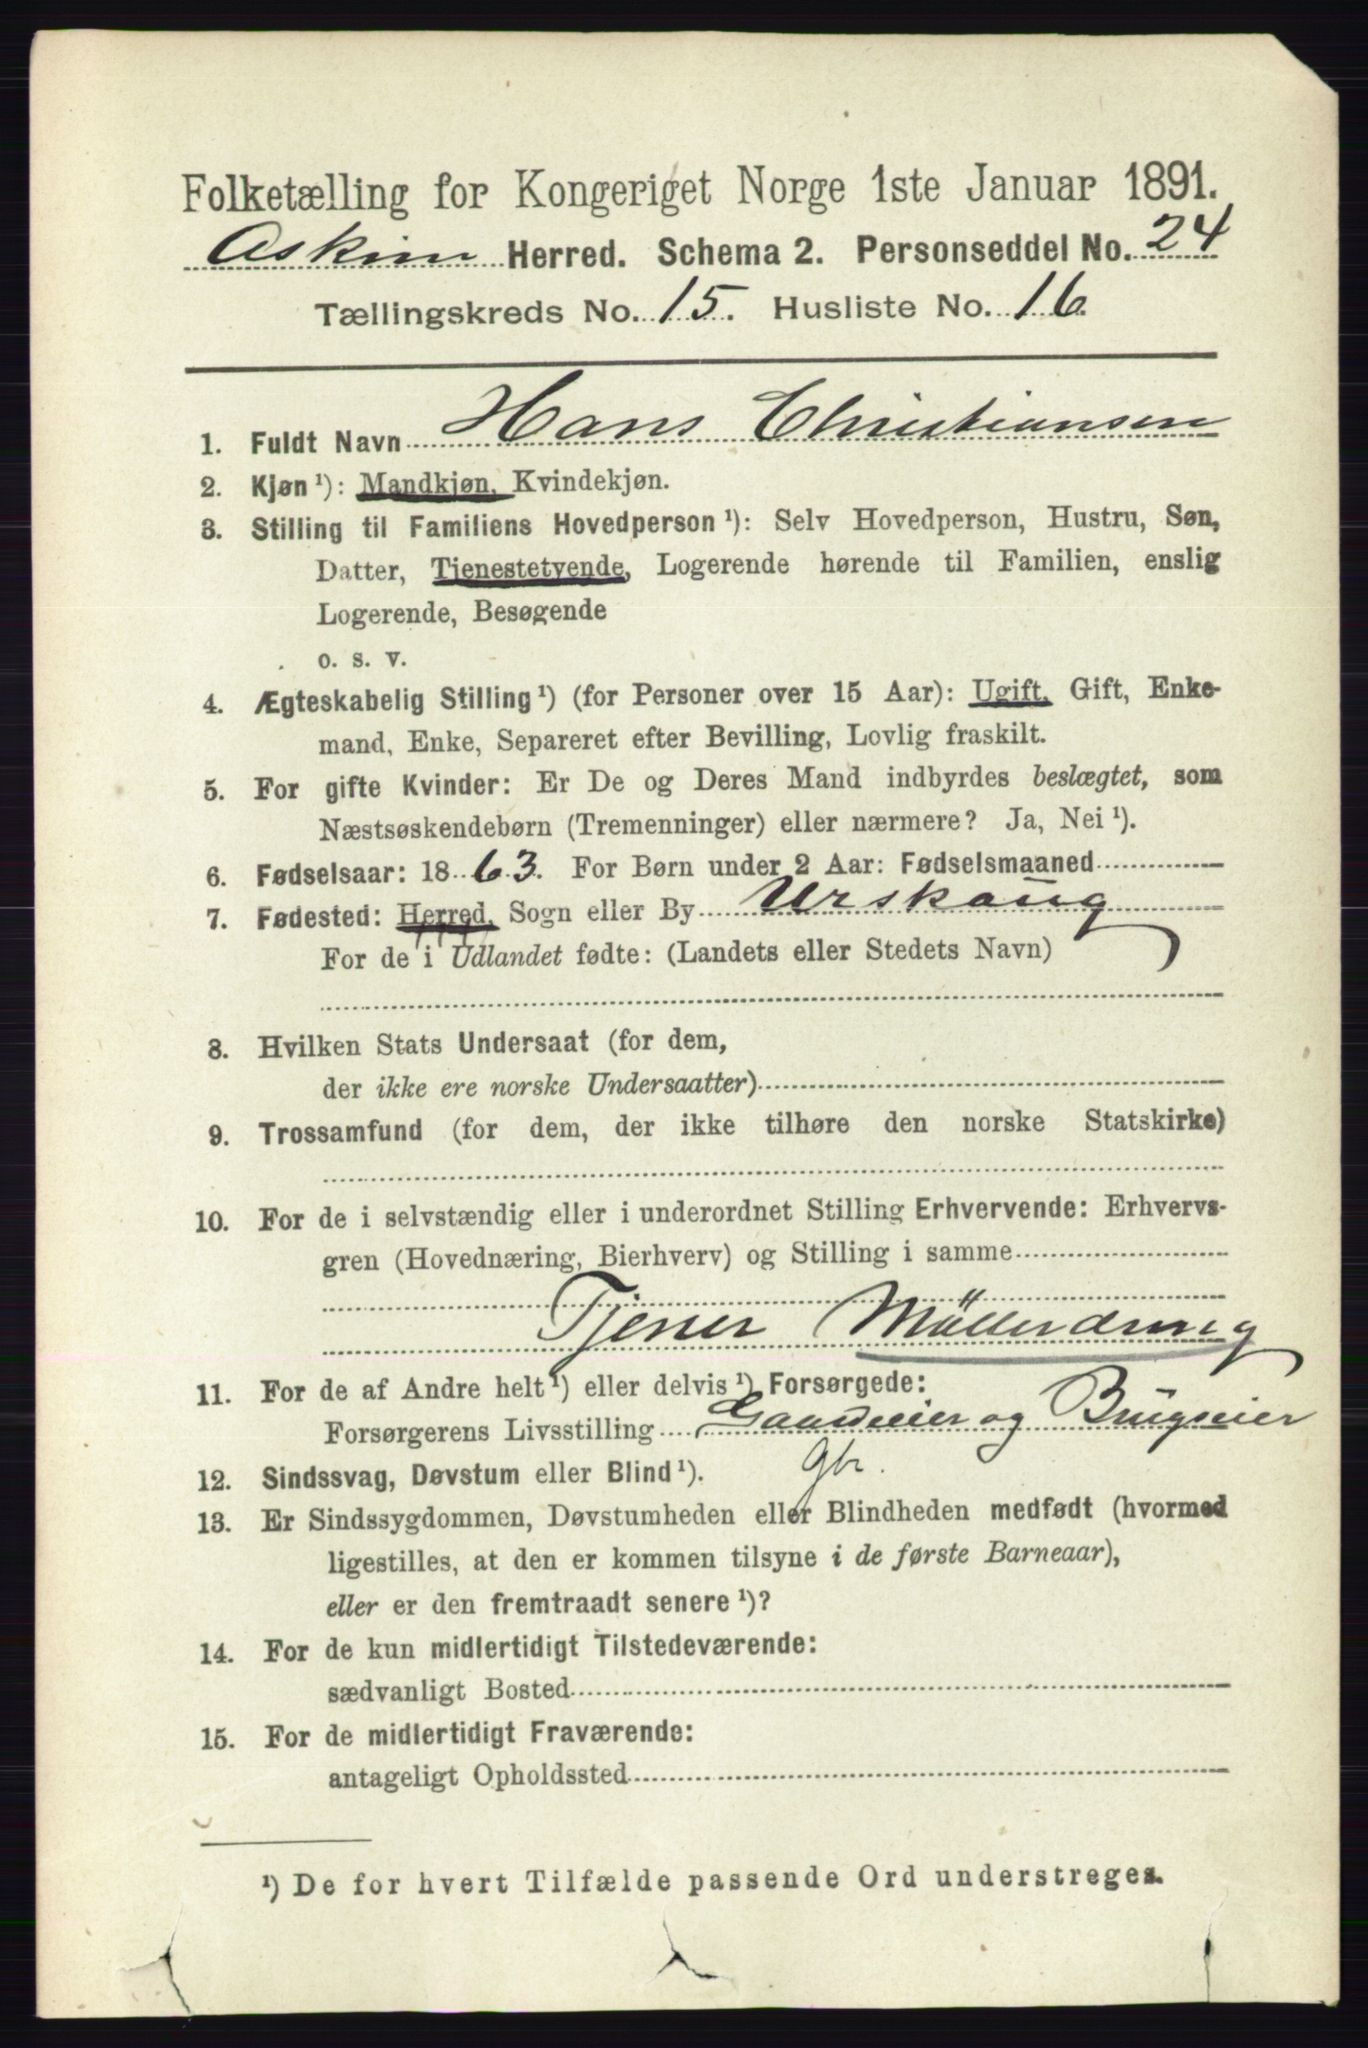 Folketælling for Kongeriget Norge 1ste Januar 1891.
Askim Herred. Schema 2. Personseddel No. 24
Tællingskreds No. 15. Husliste No. 16.
1. Fuldt Navn Hans Christiansen
2. Kjøn ¹): Mandkjøn, Kvindekjøn.
3. Stilling til Familiens Hovedperson ¹): Selv Hovedperson, Hustru, Søn,
Datter, Tjenestetyende, Logerende hørende til Familien, enslig
Logerende, Besøgende
o. s. v.
4. Ægteskabelig Stilling ¹) (for Personer over 15 Aar): Ugift, Gift, Enke-
mand, Enke, Separeret efter Bevilling, Lovlig fraskilt.
5. For gifte Kvinder: Er De og Deres Mand indbyrdes beslægtet, som
Næstsøskendebørn (Tremenninger) eller nærmere? Ja, Nei ¹).
6. Fødselsaar: 1863. For Børn under 2 Aar: Fødselsmaaned
7. Fødested: Herred, Sogn eller By Urskoug
For de i Udlandet fødte: (Landets eller Stedets Navn)
8. Hvilken Stats Undersaat (for dem,
der ikke ere norske Undersaatter)
9. Trossamfund (for dem, der ikke tilhøre den norske Statskirke)
10. For de i selvstændig eller i underordnet Stilling Erhvervende: Erhvervs-
gren (Hovednæring, Bierhverv) og Stilling i samme
Tjener Mölledreng
11. For de af Andre helt ¹) eller delvis ¹) Forsørgede:
Forsørgerens Livsstilling Gaardeier og Brugseier
12. Sindssvag, Døvstum eller Blind ¹). gbr.
13. Er Sindssygdommen, Døvstumheden eller Blindheden medfødt (hvormed
ligestilles, at den er kommen tilsyne i de første Barneaar),
eller er den fremtraadt senere ¹)?
14. For de kun midlertidigt Tilstedeværende:
sædvanligt Bosted
15. For de midlertidigt Fraværende:
antageligt Opholdssted
¹) De for hvert Tilfælde passende Ord understreges.